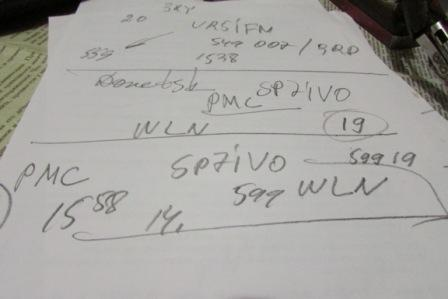 20 SKY
UR5IFM
599 599 007/QRP
1538
Donetsk SP7IVO
PMC
WLN 19
PMC SP7IVO 599 19
15 58 14, 599 WLN